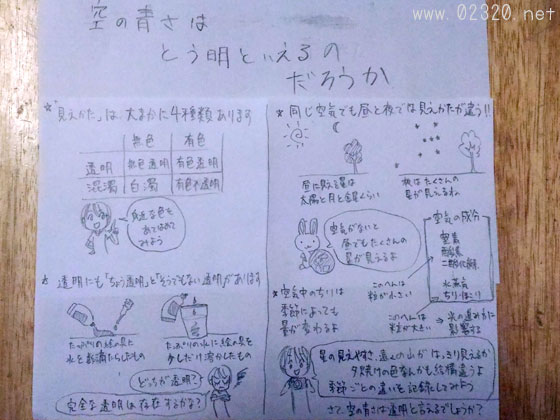 www.02320.net
空の青さは
とう明といえるの
だろうか
★「見えかた」は、大まかに4種類あります
無色 有色
透明 無色透明 有色透明
混濁 白濁 有色不透明
身近な色を
あてはめて
みよう
★透明にも「ちょう透明」と「そうでもない透明」があります
たっぷりの絵の具と
水とお満たらしたもの
たっぷりの水に絵の具を
少しだけ溶かしたもの
どっちが透明?
完全な透明は存在するかな?
★同じ空気でも昼と夜では見えかたが違う!!
昼に見える星は
太陽と月と金星くらい
夜はたくさんの
星が見えるね
空気がないと
昼でもたくさんの
星が見えるよ
空気の成分
窒素
酸素
二酸化炭素
水蒸気
ちり・ほこり
★空気中のちりは
季節によっても
量が変わるよ
このへんは
粒が小さい
このへんは
粒が大きい
→光の進み方に
影響する
星の見えやすさ、遠くの山がはっきり見えるか
夕焼けの色なんかも結構違うよ
季節ごとの違いを記録してみよう
さて、空の青さは透明と言えるでしょうか?